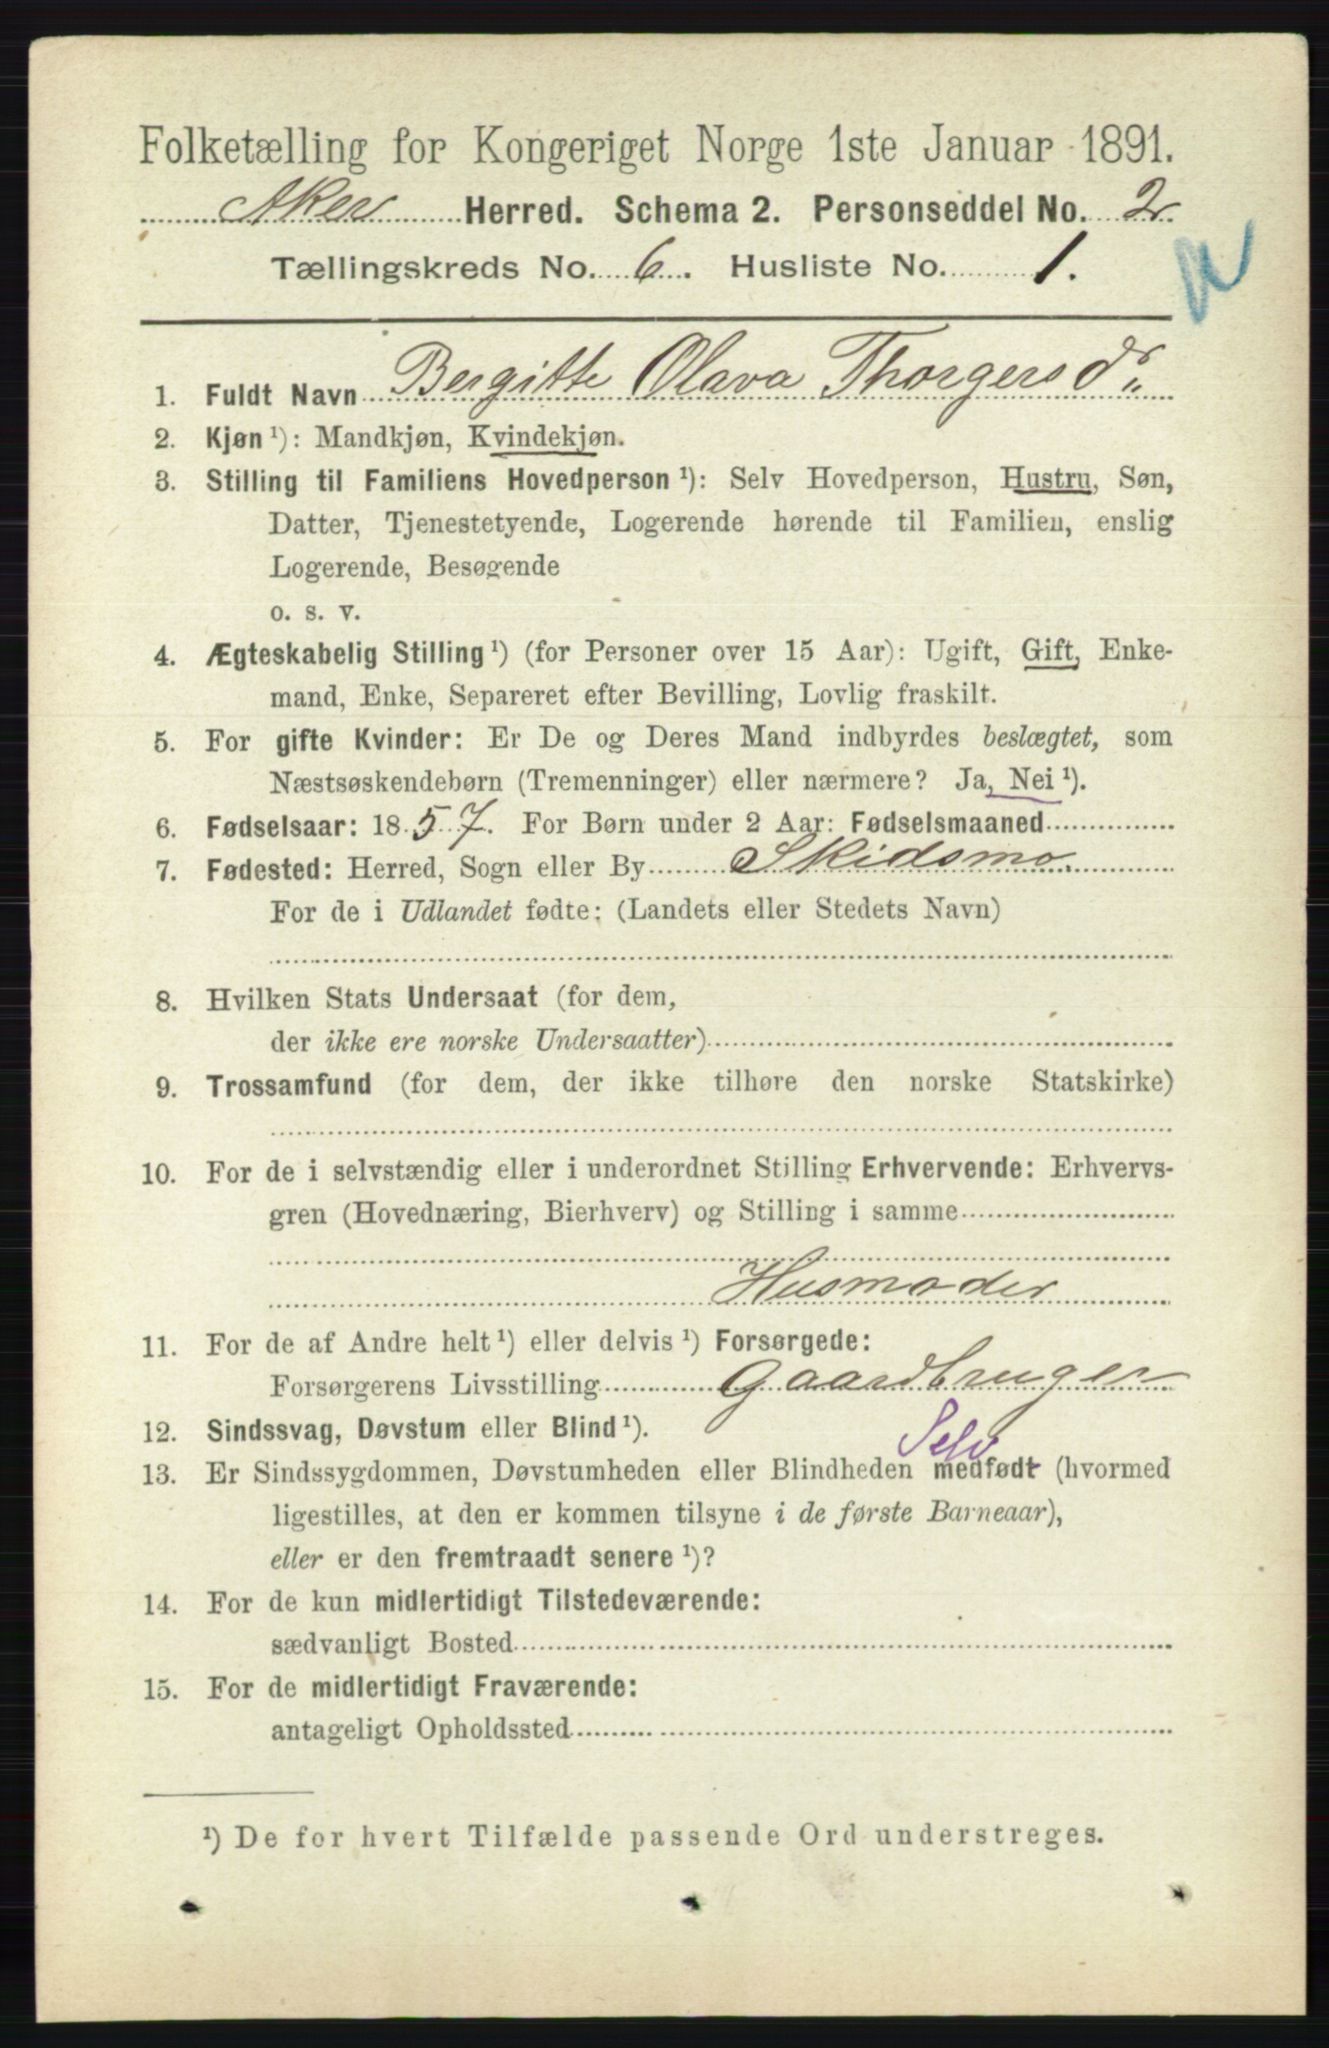 Folketælling for Kongeriget Norge 1ste Januar 1891.
Aker Herred. Schema 2. Personseddel No. 2
Tællingskreds No. 6. Husliste No. 1.
1. Fuldt Navn Bergitte Olava Thorgersdr
2. Kjøn ¹): Mandkjøn, Kvindekjøn.
3. Stilling til Familiens Hovedperson ¹): Selv Hovedperson, Hustru, Søn,
Datter, Tjenestetyende, Logerende hørende til Familien, enslig
Logerende, Besøgende
o. s. v.
4. Ægteskabelig Stilling ¹) (for Personer over 15 Aar): Ugift, Gift, Enke-
mand, Enke, Separeret efter Bevilling, Lovlig fraskilt.
5. For gifte Kvinder: Er De og Deres Mand indbyrdes beslægtet, som
Næstsøskendebørn (Tremenninger) eller nærmere? Ja, Nei ¹).
6. Fødselsaar: 1857. For Børn under 2 Aar: Fødselsmaaned
7. Fødested: Herred, Sogn eller By Skidsmo.
For de i Udlandet fødte: (Landets eller Stedets Navn)
8. Hvilken Stats Undersaat (for dem,
der ikke ere norske Undersaatter)
9. Trossamfund (for dem, der ikke tilhøre den norske Statskirke)
10. For de i selvstændig eller i underordnet Stilling Erhvervende: Erhvervs-
gren (Hovednæring, Bierhverv) og Stilling i samme
Husmoder
11. For de af Andre helt ¹) eller delvis ¹) Forsørgede:
Forsørgerens Livsstilling Gaardbruger
Selv
12. Sindssvag, Døvstum eller Blind ¹).
13. Er Sindssygdommen, Døvstumheden eller Blindheden medfødt (hvormed
ligestilles, at den er kommen tilsyne i de første Barneaar),
eller er den fremtraadt senere ¹)?
14. For de kun midlertidigt Tilstedeværende:
sædvanligt Bosted
15. For de midlertidigt Fraværende:
antageligt Opholdssted
¹) De for hvert Tilfælde passende Ord understreges.